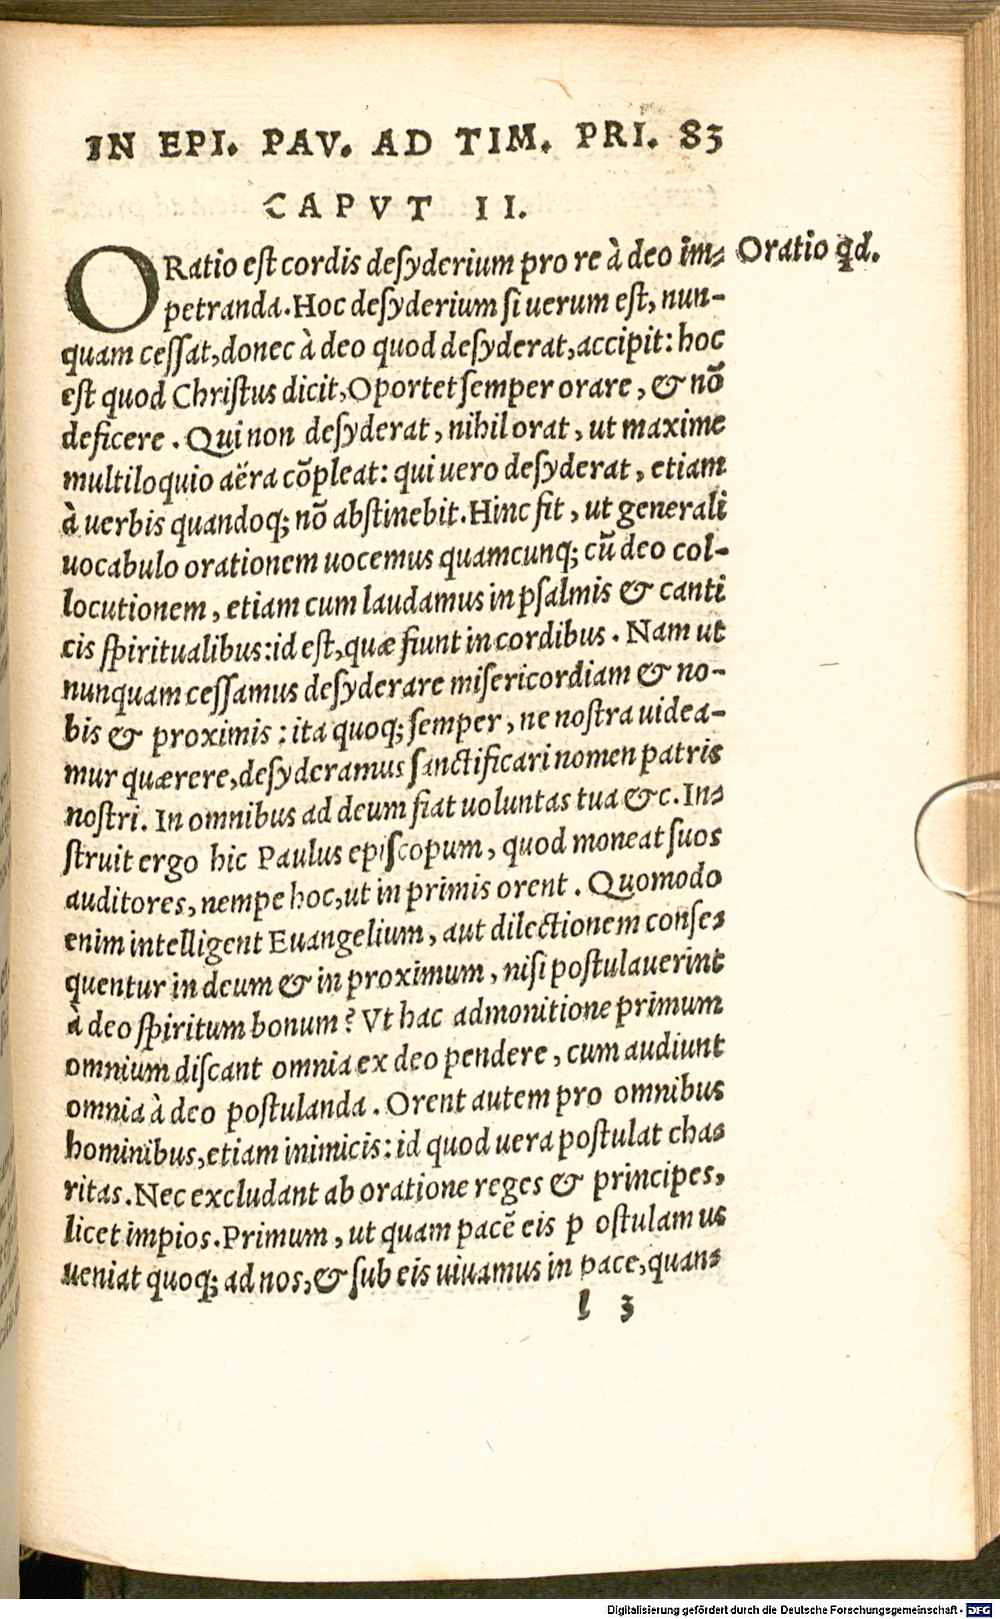 IN EPI. PAV. AD TIM. PRI. 83
CAPVT II.
ORatio est cordis desyderium pro re à deo im-
Oratio qd.
petranda. Hoc desyderium si uerum est, nun-
quam cessat, donec à deo quod desyderat, accipit: hoc
est quod Christus dicit, Oportet semper orare, & nõ
deficere. Qui non desyderat, nihil orat, ut maxime
multiloquio aëra cõpleat: qui uero desyderat, etiam
à uerbis quandoq; nõ abstinebit. Hinc fit, ut generali
uocabulo orationem uocemus quamcunq; cũ deo col-
locutionem, etiam cum laudamus in psalmis & canti
cis spiritualibus: id est, quæ fiunt in cordibus. Nam ut
nunquam cessamus desyderare misericordiam & no-
bis & proximis: ita quoq; semper, ne nostra uidea-
mur quærere, desyderamus sanctificari nomen patris
nostri. In omnibus ad deum fiat uoluntas tua &c. In-
struit ergo hic Paulus episcopum, quod moneat suos
auditores, nempe hoc, ut in primis orent. Quomodo
enim intelligent Euangelium, aut dilectionem conse-
quentur in deum & in proximum, nisi postulauerint
à deo spiritum bonum? Vt hac admonitione primum
omnium discant omnia ex deo pendere, cum audiunt
omnia à deo postulanda. Orent autem pro omnibus
hominibus, etiam inimicis: id quod uera postulat cha-
ritas. Nec excludant ab oratione reges & principes,
licet impios. Primum, ut quam pacẽ eis p ostulamus
ueniat quoq; ad nos, & sub eis uiuamus in pace, quan-
l 3
Digitalisierung gefördert durch die Deutsche Forschungsgemeinschaft - DFG